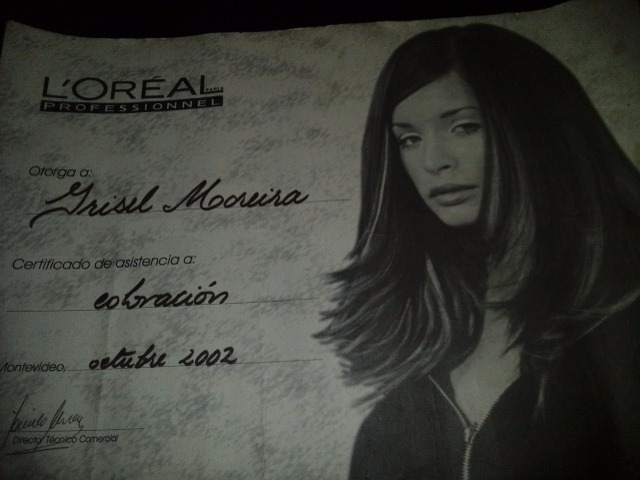 L'ORÉAL
PARIS
PROFESSIONNEL
Otorga a:
Grisel Moreira
Certificado de asistencia a:
coloración
Montevideo, octubre 2002
Director Técnico Comercial